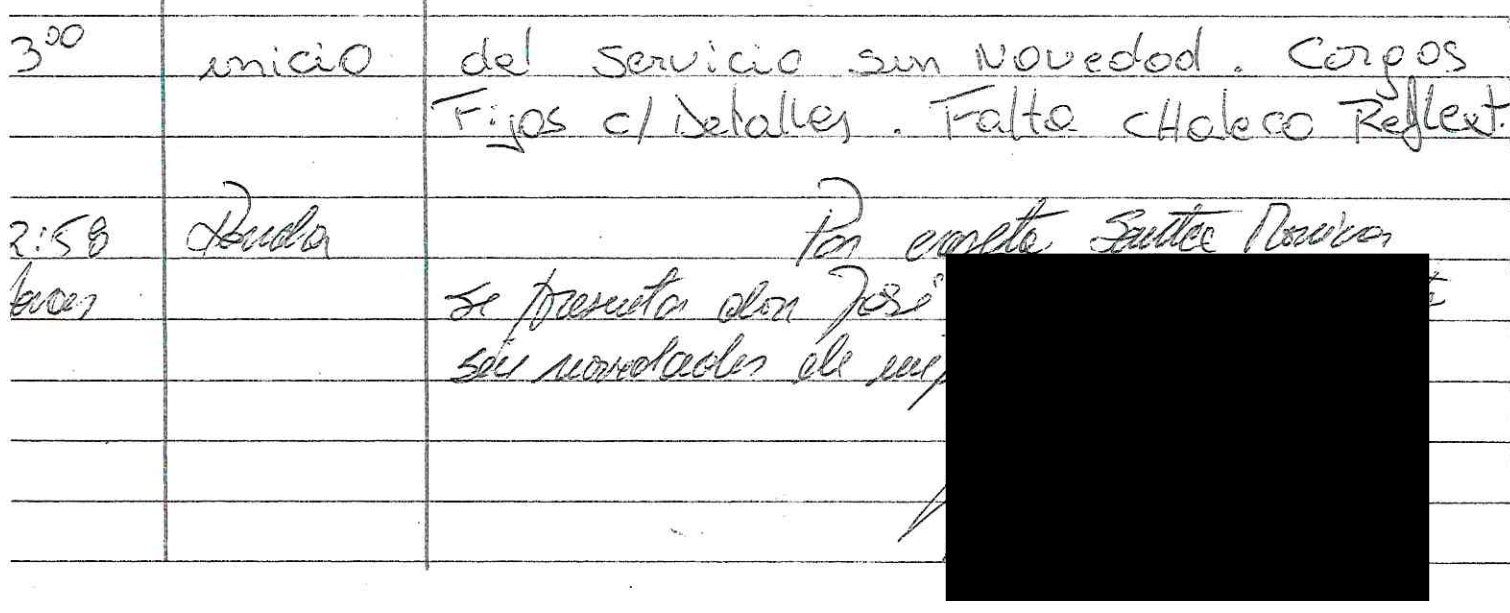 3⁰⁰ inicio del Servicio sin Novedad. Cargos
Fijos c/ Detalles. Falta cHaleco Reflext.
2:58 Ronda Por caseta Santa Monica
se presenta don José
sin novedades de